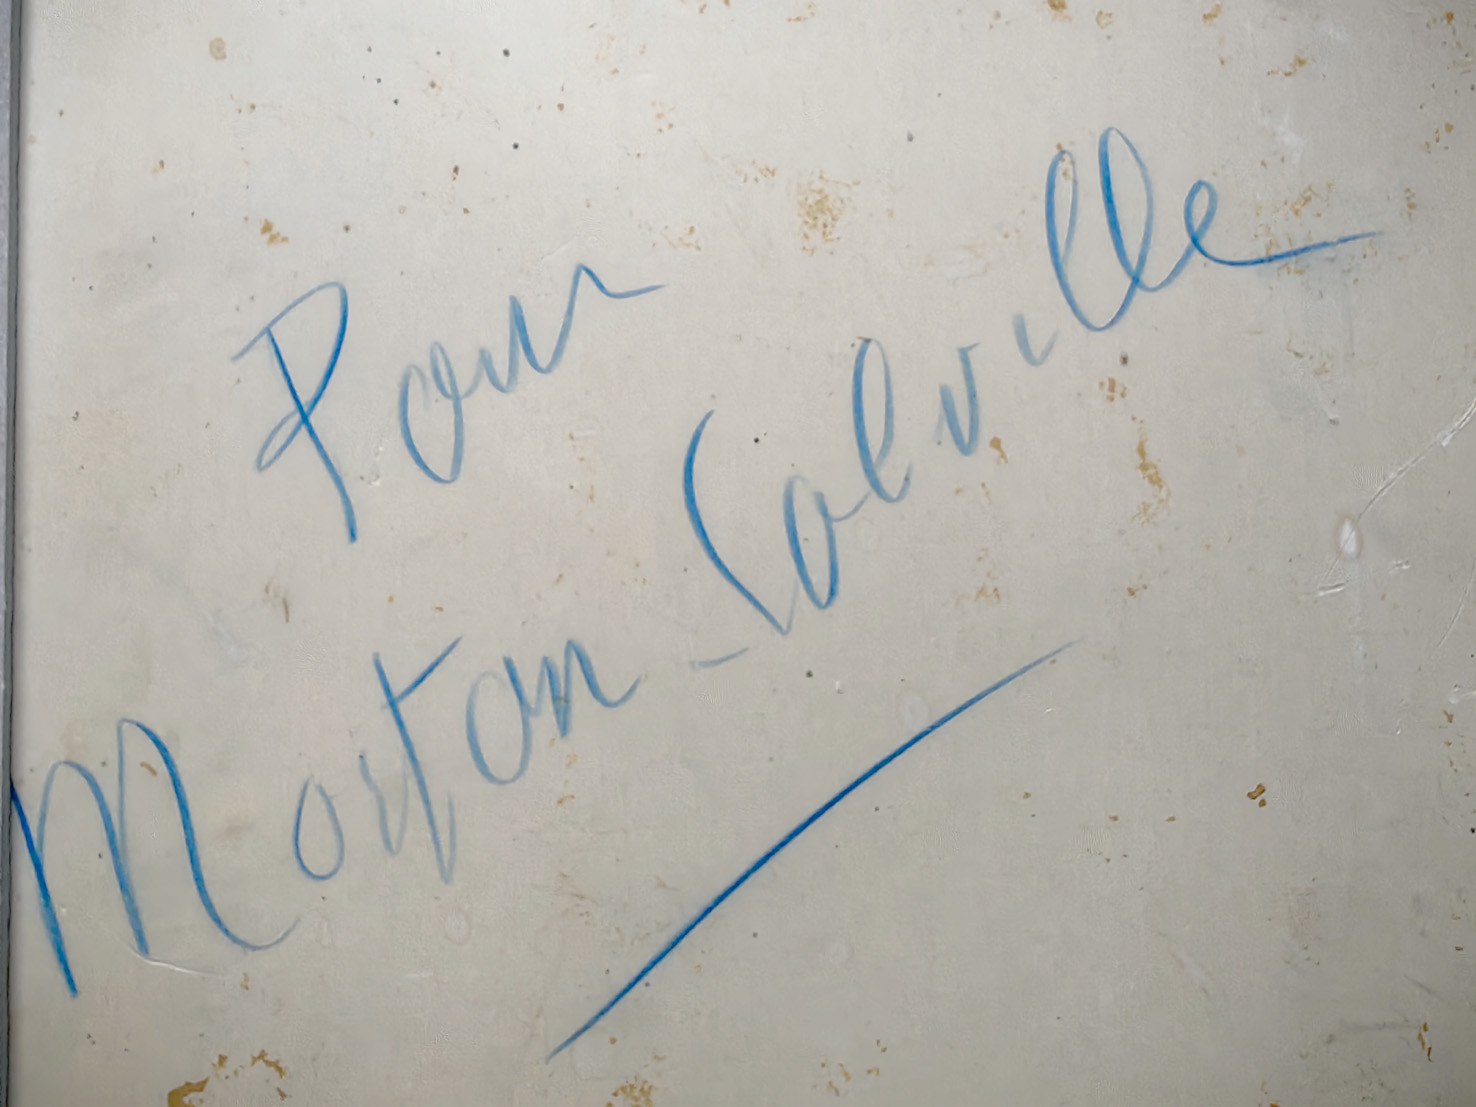 Pour
Mortan-Calville